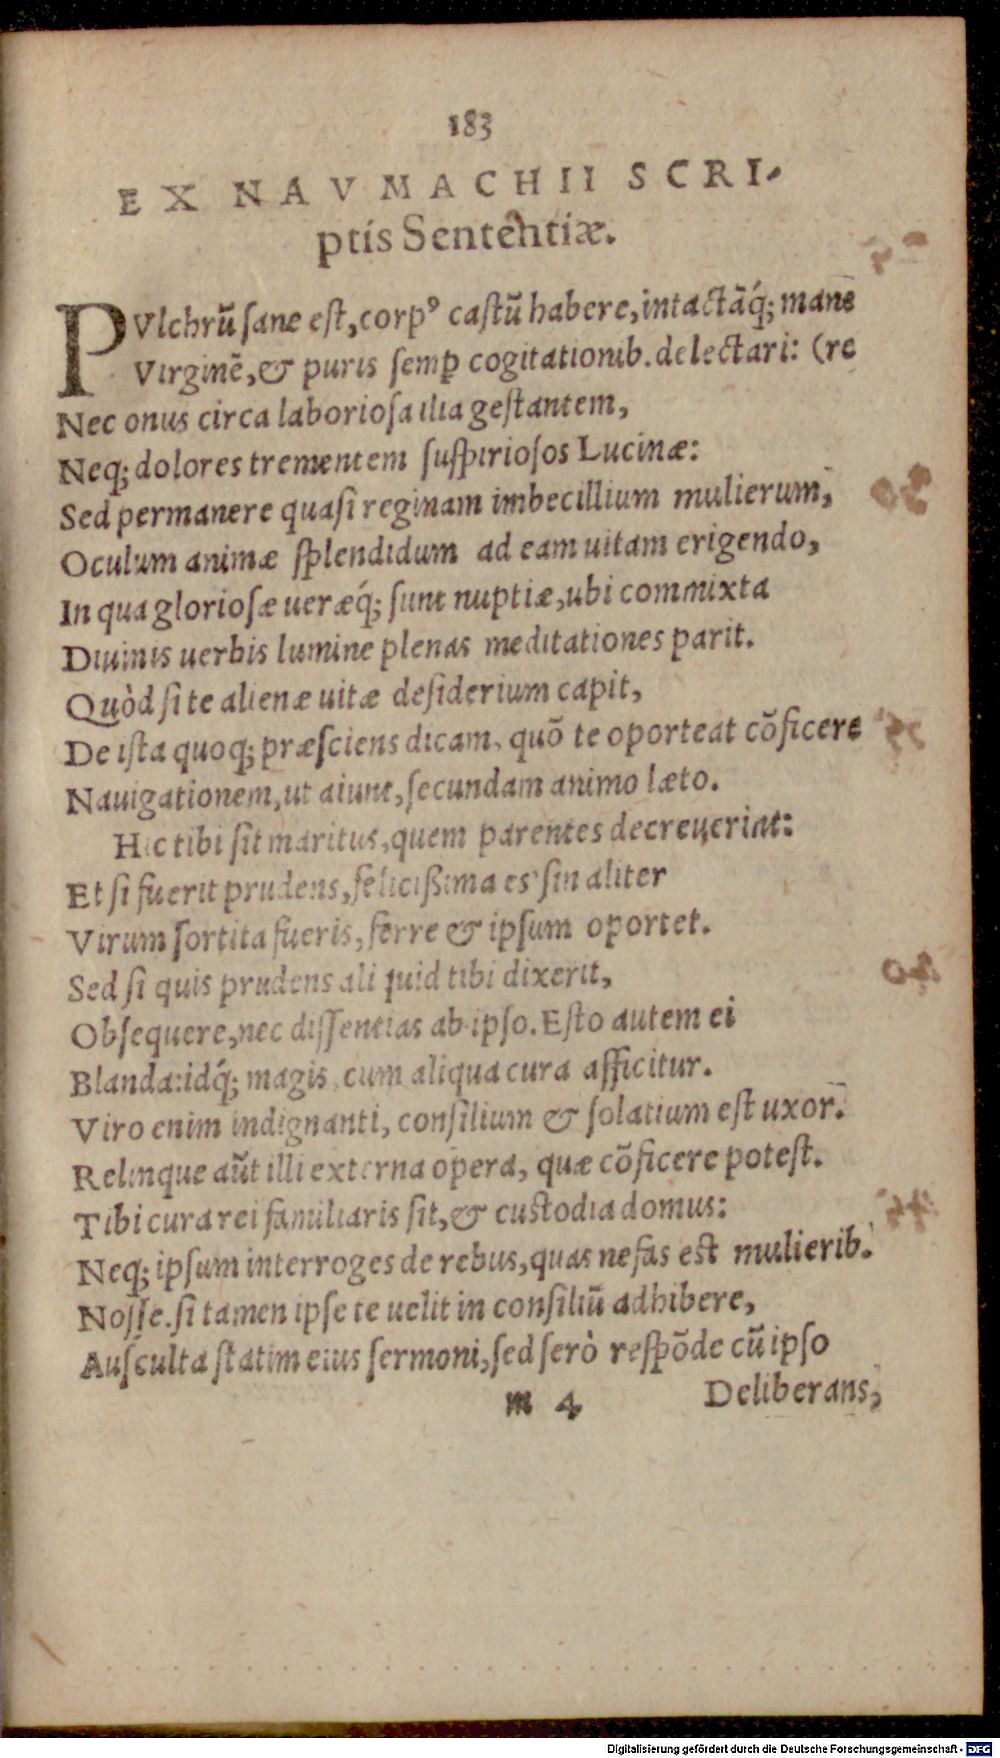 183
EX NAVMACHII SCRI-
ptis Sententiæ.
PVlchrũ sane est, corpꝰ castũ habere, intactãq́; mane
Virginẽ, & puris semꝑ cogitationib. delectari: (re
Nec onus circa laboriosa ilia gestantem,
Neq; dolores trementem suspiriosos Lucinæ:
Sed permanere quasi reginam imbecillium mulierum,
Oculum animæ splendidum ad eam uitam erigendo,
In qua gloriosæ ueræq́; sunt nuptiæ, ubi commixta
Diuinis uerbis lumine plenas meditationes parit.
Quòd si te alienæ uitæ desiderium capit,
De ista quoq; præsciens dicam, quõ te oporteat cõficere
Nauigationem, ut aiunt, secundam animo læto.
Hic tibi sit maritus, quem parentes decreuerint:
Et si fuerit prudens, felicißima es: sin aliter
Virum sortita fueris, ferre & ipsum oportet.
Sed si quis prudens aliquid tibi dixerit,
Obsequere, nec dissentias ab ipso. Esto autem ei
Blanda: idq́; magis, cum aliqua cura afficitur.
Viro enim indignanti, consilium & solatium est uxor.
Relinque aũt illi externa opera, quæ cõficere potest.
Tibi cura rei familiaris sit, & custodia domus:
Neq; ipsum interroges de rebus, quas nefas est mulierib.
Nosse. si tamen ipse te uelit in consiliũ adhibere,
Ausculta statim eius sermoni, sed serò respõde cũ ipso
m 4 Deliberans,
Digitalisierung gefördert durch die Deutsche Forschungsgemeinschaft - DFG